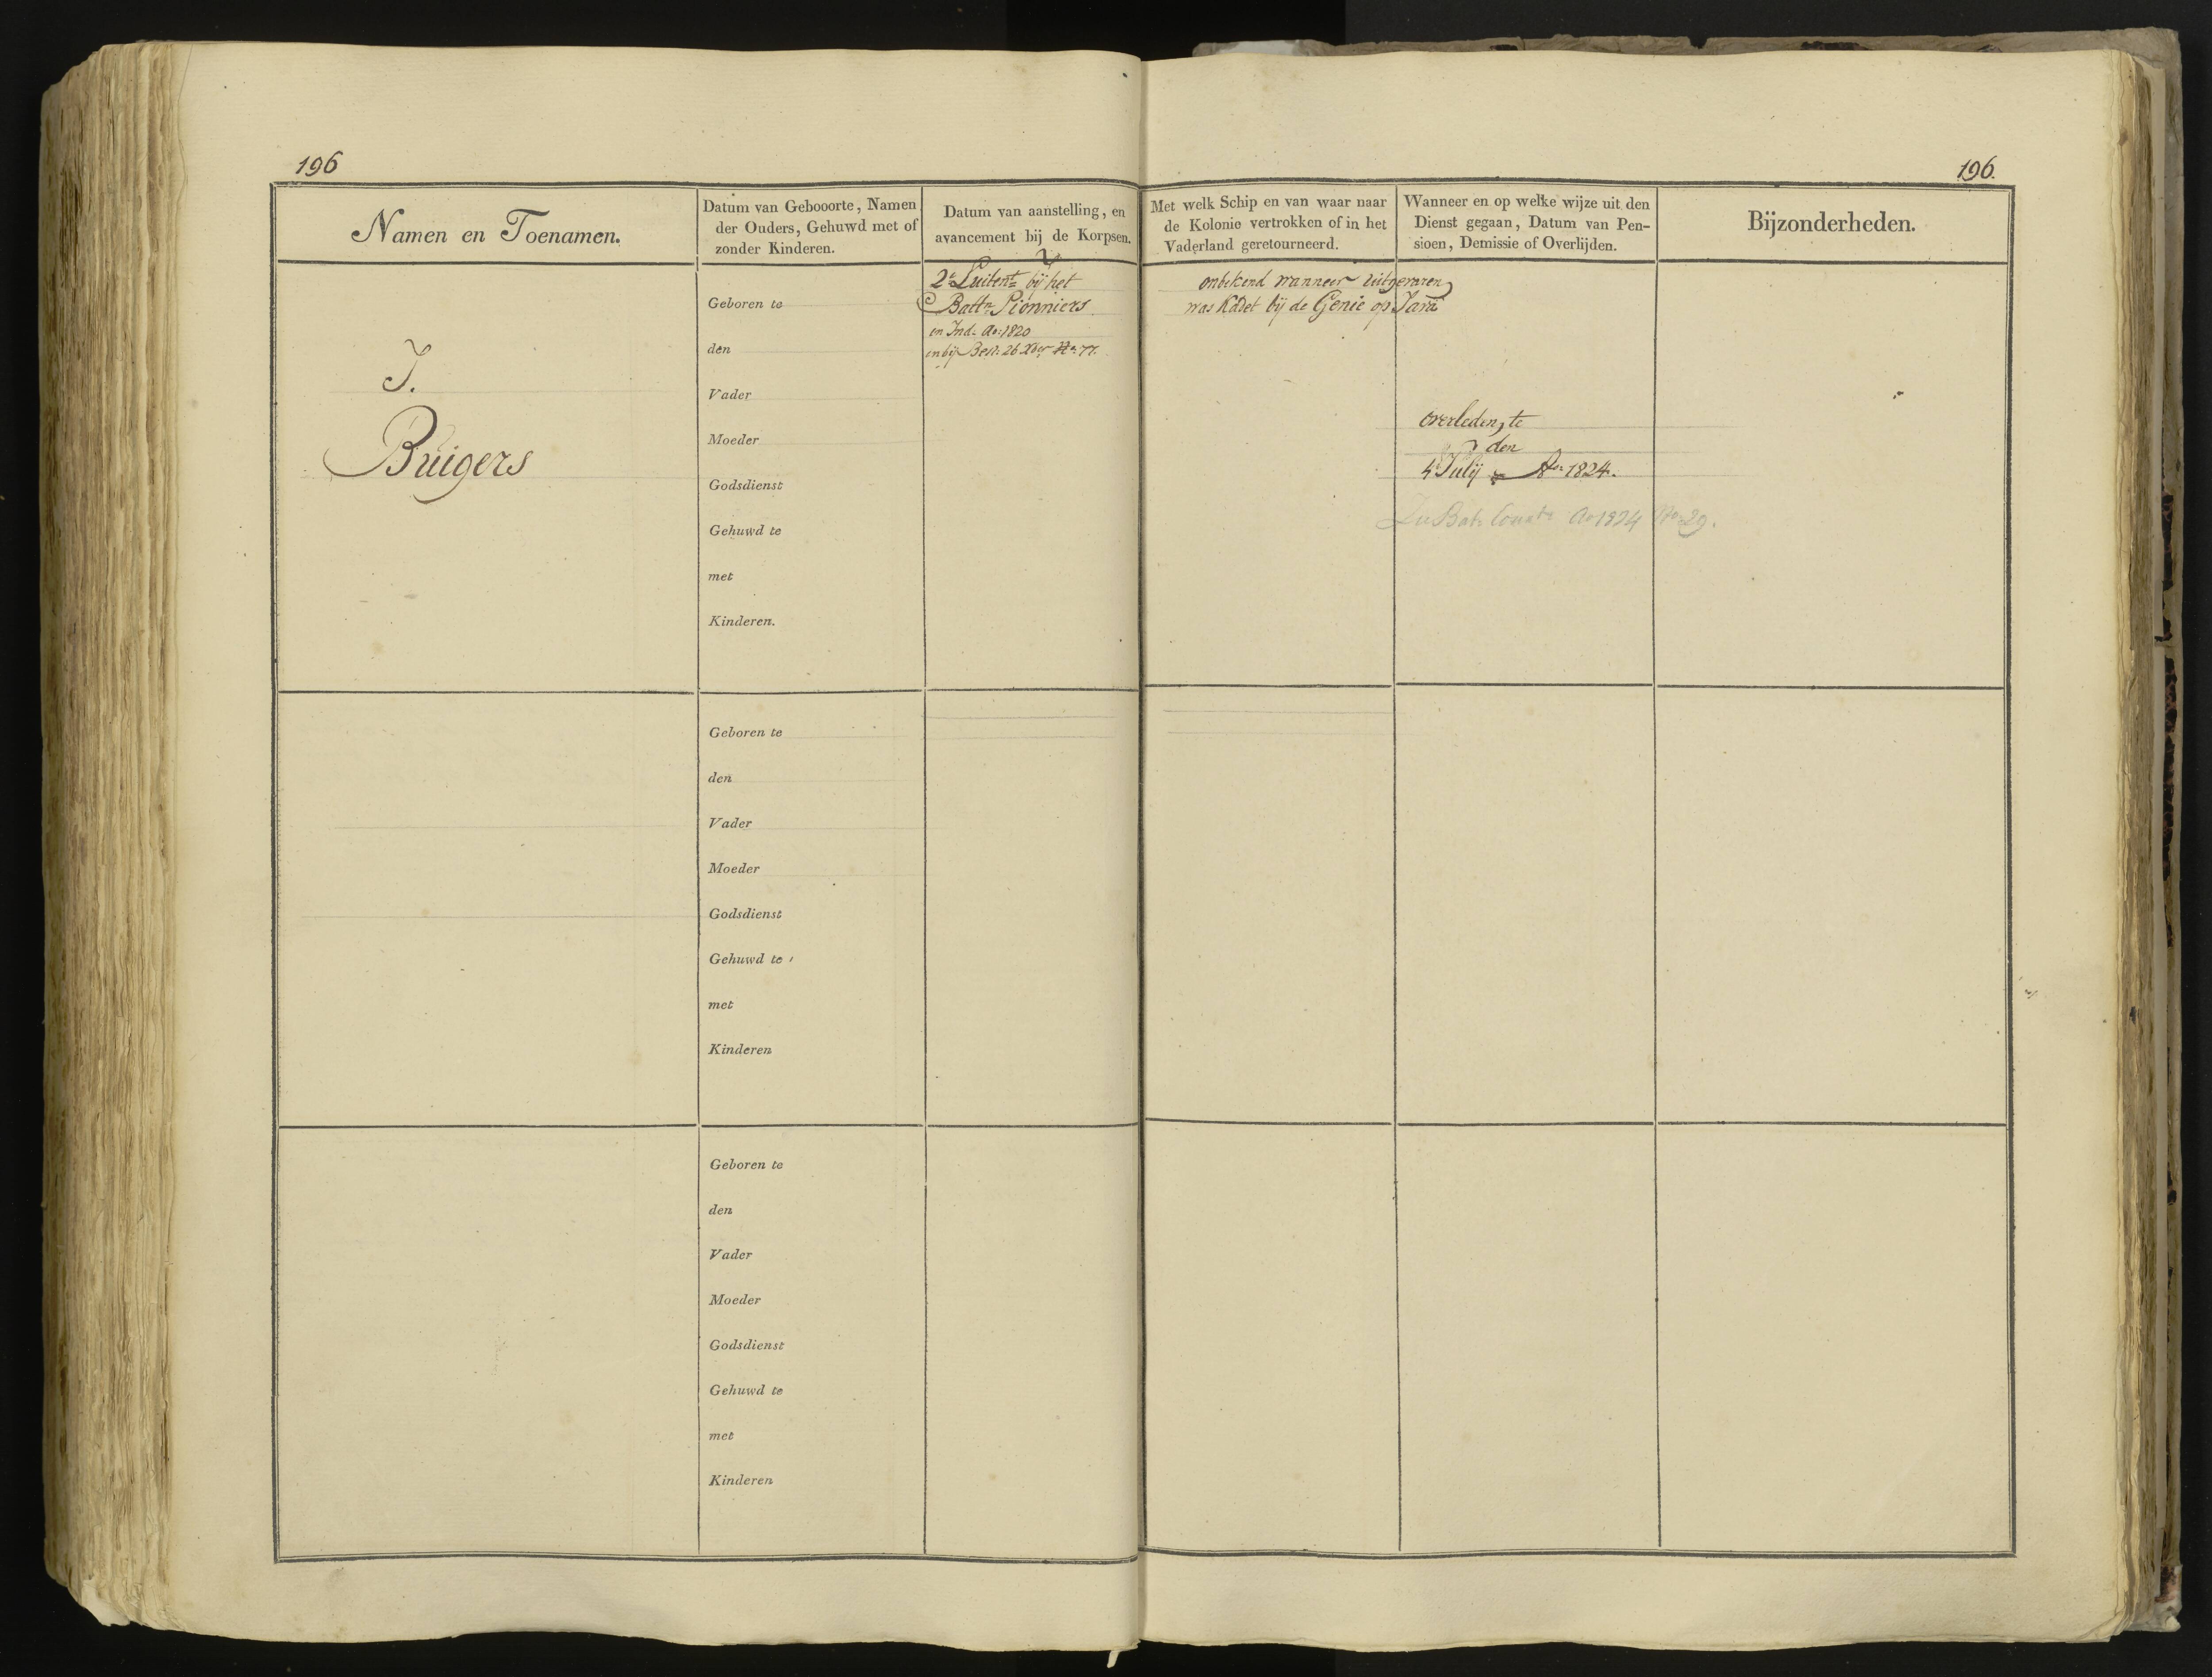 196
196.
Namen en Toenamen.
Datum van Gebooorte, Namen
der Ouders, Gehuwd met of
zonder Kinderen.
Datum van aanstelling, en
avancement bij de Korpsen.
Met welk Schip en van waar naar
de Kolonie vertrokken of in het
Vaderland geretourneerd.
Wanneer en op welke wijze uit den
Dienst gegaan, Datum van Pen-
sioen, Demissie of Overlijden.
Bijzonderheden.
J.
Buigers
Geboren te
den
Vader
Moeder
Godsdienst
Gehuwd te
met
Kinderen.
2e Luitent bij het
Battn Pionniers
in Ind. Ao: 1820
en bij Besl. 26 Xber No: 77.
onbekend wanneer uitgevaren
was Kadet bij de Genie op Java
overleden, te
den
4 Julij Ao: 1824.
Bat. Courtt Ao 1824 No 29.
Geboren te
den
Vader
Moeder
Godsdienst
Gehuwd te
met
Kinderen
Geboren te
den
Vader
Moeder
Godsdienst
Gehuwd te
met
Kinderen